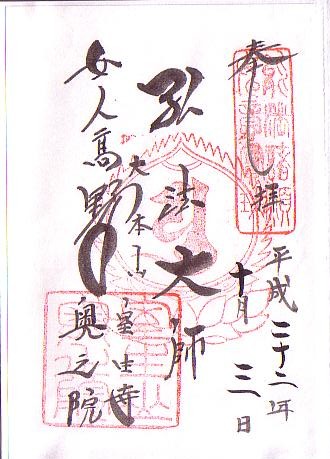 奉拝
平成二十二年
十月三日
弘法大師
女人高野
大本山
室生寺
奥之院